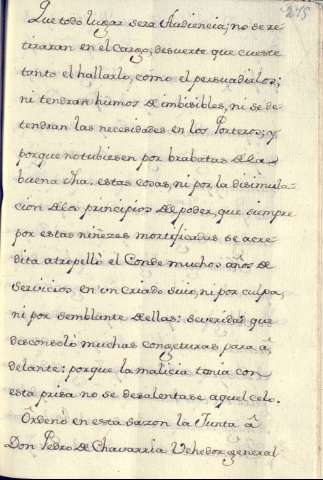 275
Que todo lugar sera Audiencia; no se re-
tiraran en el Cargo, desuerte que cueste
tanto el hallarlos, como el persuadirlos;
ni tendran humos de imbisibles, ni se de-
tendran las necesidades en los Porteros; y
porque no tubiesen por brabatas de la
buena dha. estas cosas, ni por la disimula-
cion de los principios de poder, que siempre
por estas niñezes mortificadas se acre-
dita atropellò el Conde muchos años de
servicios, en un criado suio, ni por culpa,
ni por semblante de ellas: severidad que
desconsolò muchas congeturas para â
delante: porque la malicia tenia con
esta prisa no se desalentase aquel celo.
Ordenò en esta sazon la Junta â
Don Pedro de Chavarria Vehedor general